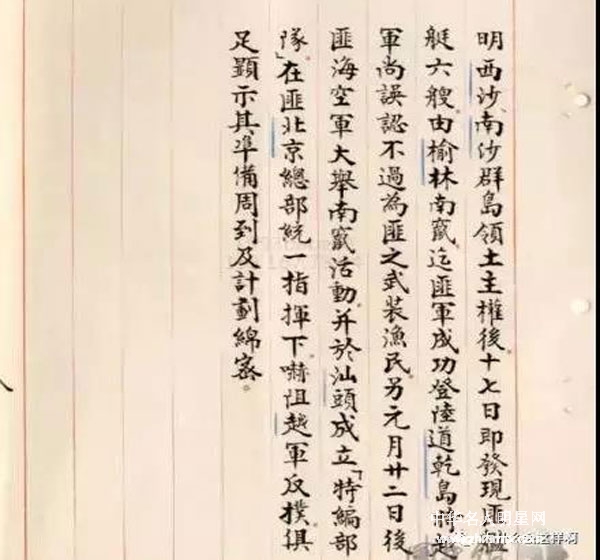 明西沙、南沙群島領土主權後。十七日即發現匪
艇六艘。由榆林南竄。迄匪軍成功登陸道乾島時越
軍尚誤認不過為匪之武裝漁民。另元月廿二日後
匪海空軍大舉南竄活動。并於汕頭成立「特編部
隊」在匪北京總部統一指揮下。嚇阻越軍反撲。俱
足顯示其準備周到及計劃綿密。
中华名人明星网